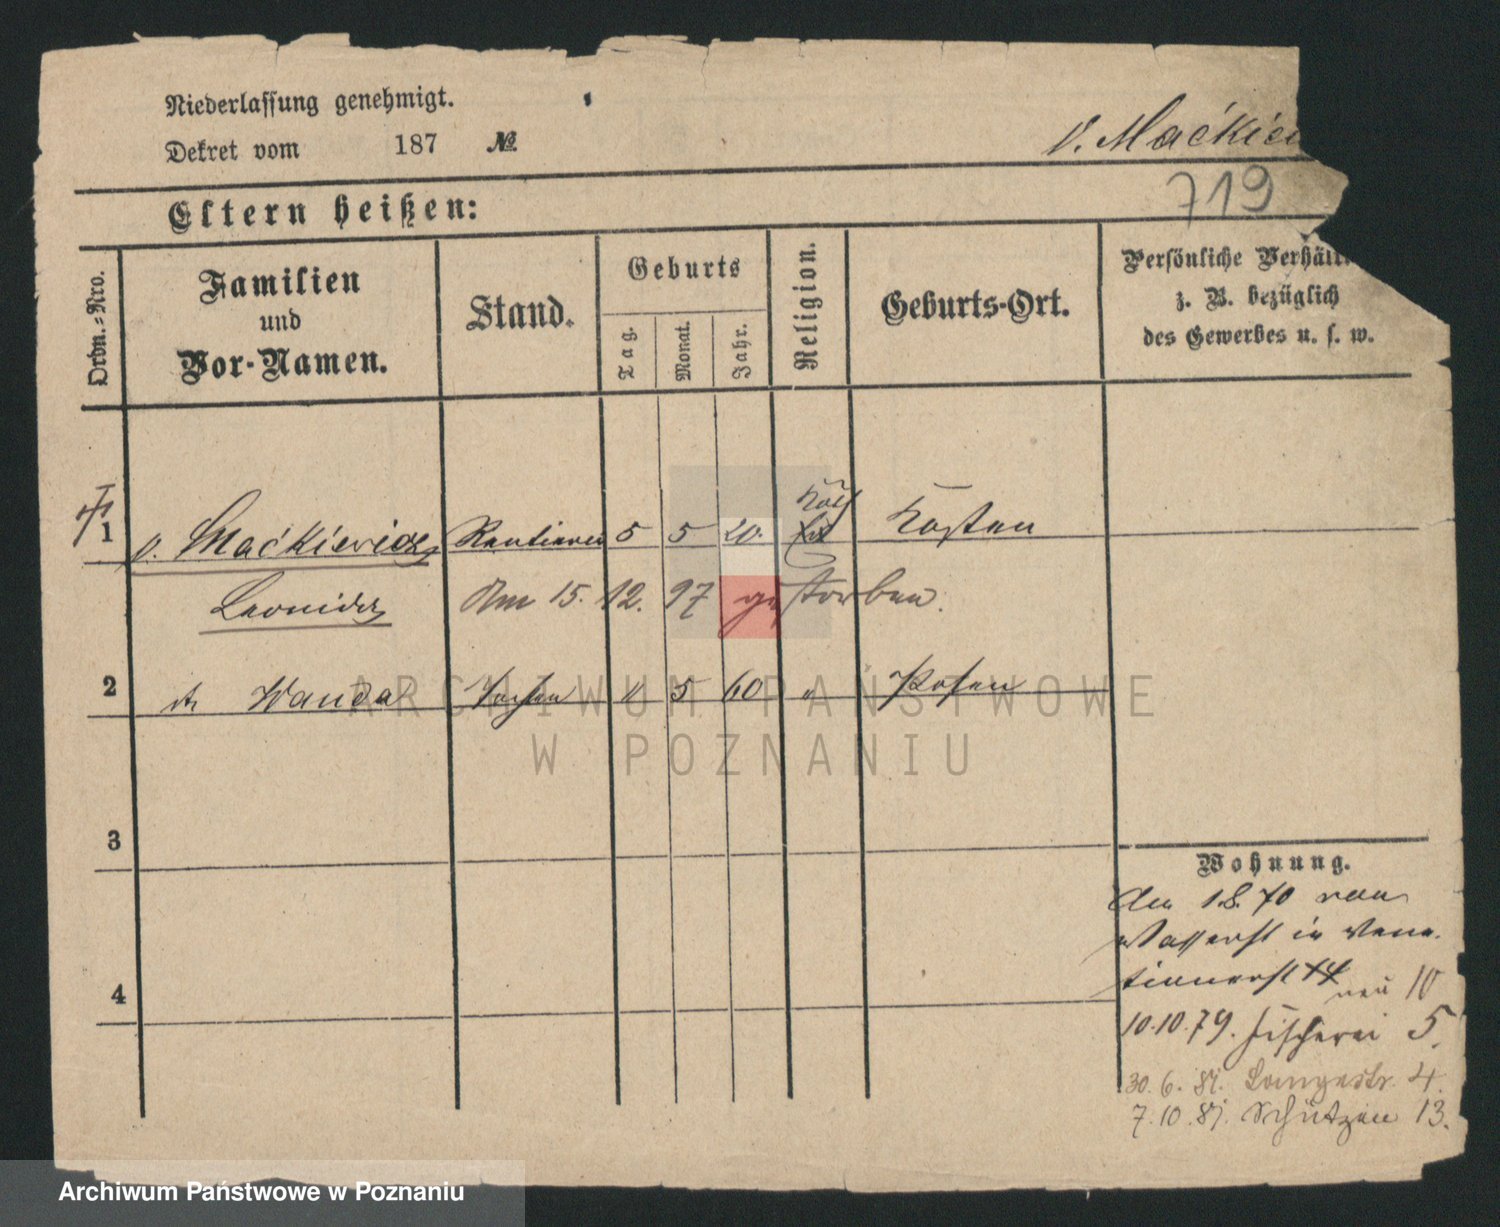 Niederlassung genehmigt.
Dekret vom 187 №
v. Maćkiew
719
Eltern heißen:
Ordn.-Nro.
Familien
und
Vor-Namen.
Stand.
Geburts
Tag.
Monat.
Jahr.
Religion.
Geburts-Ort.
Persönliche Verhält
z. B. bezüglich
des Gewerbes u. s. w.
1 v. Maćkiewicz Rentierer 5 5 20. Kath Kosten
Leonidas Am 15. 12. 97 gestorben.
2 Wanda Tochter " 5 60 " Posen
3
4
Wohnung.
Am 1.8.70 von
Wasserst in Vene-
tianerst 14 neu 10
10.10.79. Fischerei 5.
30.6.81. Langestr. 4.
7.10.81. Schützen 13.
ARCHIWUM PAŃSTWOWE
W POZNANIU
Archiwum Państwowe w Poznaniu